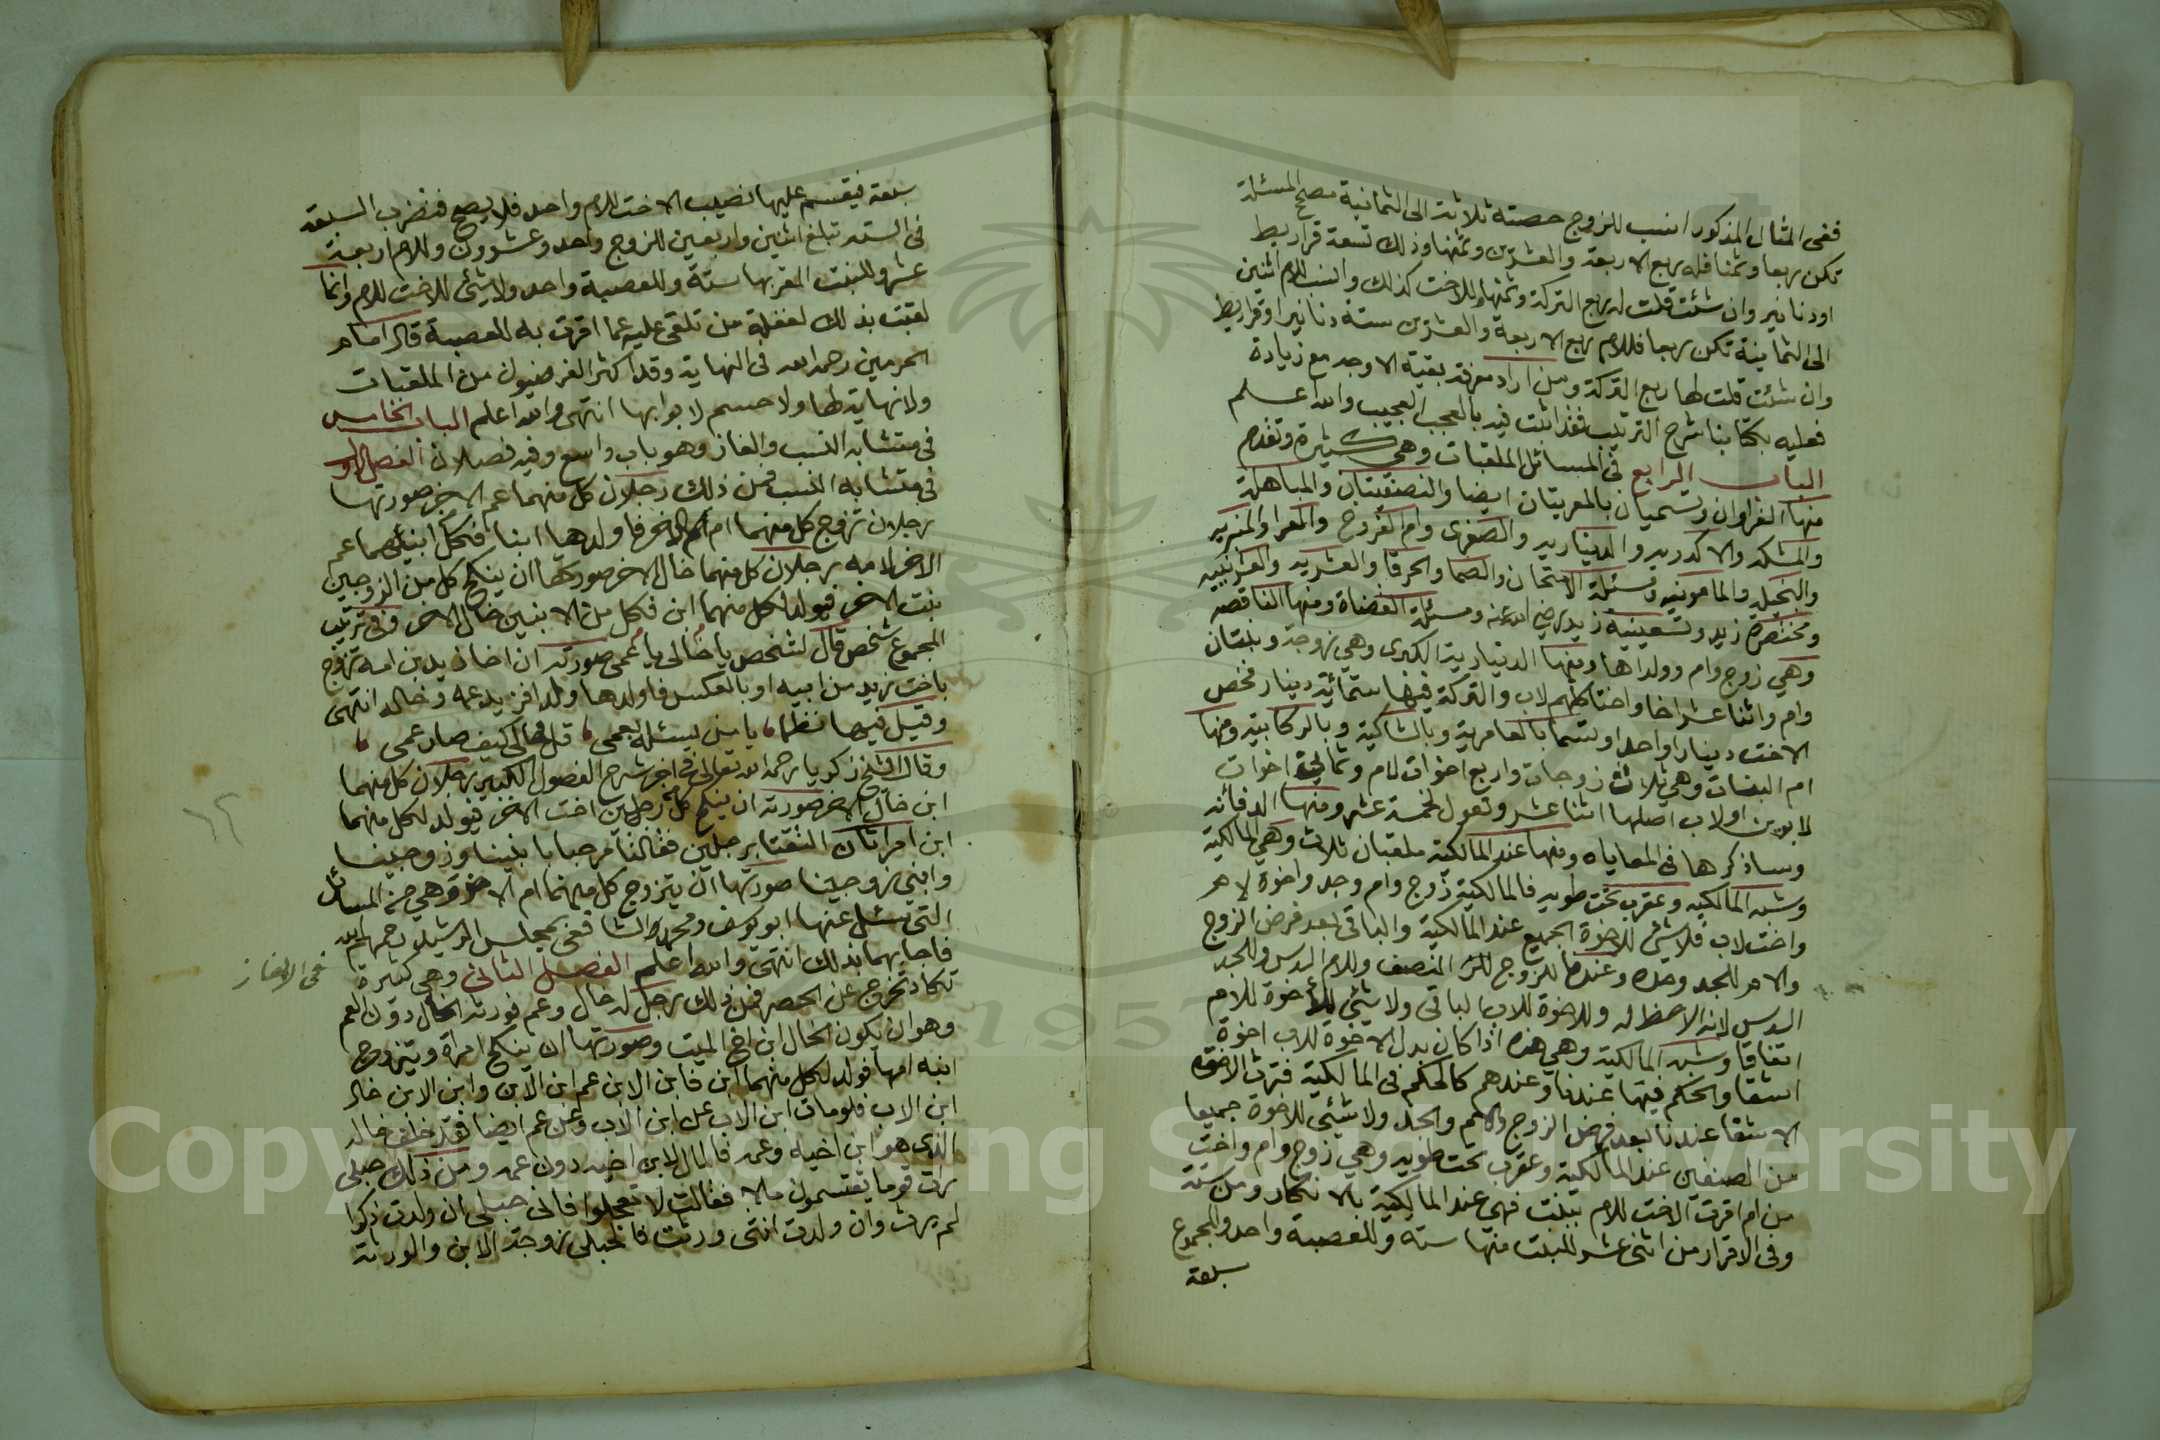 ففى المثال المذكور انسب للزوج حصته ثلاثة الى الثمانية مصح المسئلة
تكن ربعا وثمنا فله ربع الاربعة والعشرين وثمنها وذلك تسعة قراريط
او دنانير وان شئت قلت له ربع التركة وثمنها وللاخت كذلك وانسب للام اثنين
الى الثمانية تكن ربعا فللام ربع الاربعة والعشرين ستة دنانير او قراريط
وان شئت قلت لها ربع التركة ومن اراد معرفة بقية الاوجه مع زيادة
فعليه بكتابنا شرح الترتيب فقد اتيت فيه بالعجب العجيب والله اعلم
الباب الرابع فى المسائل الملقبات وهى كثيرة وتقدم
منها الغراوان وتسميان بالعمريتان ايضا والنصفيتان والمباهلة
والمشتركة والاكدريه والديناريه والصغرى وام الفروخ والغراء والمنبريه
والبخيله والمامونيه ومسئلة الامتحان والصما والخرقا والعشريه والعشرينيه
ومختصرة زيد وتسعينية زيد رضى الله عنه ومسئلة القضاة ومنها الناقصه
وهي زوج وام وولداها ومنها الدينارية الكبرى وهي زوجة وبنتان
وام واثنا عشر اخا واختا كلهم لاب والتركة فيها ستمائة دينار فخص
الاخت دينارا واحدا وتسما بالعامرية وبالشاكية وبالركابية ومنها
ام البنات وهي ثلاث زوجات واربع اخوات لام وثمانية اخوات
لابوين او لاب اصلها اثنا عشر وتعول لخمسة عشر ومنها الدفانه
وساذكرها فى المعاياه ومنها عند المالكية ملقبان ثلاث وهي المالكية
وشبه المالكيه وعقرب تحت طوبه فالمالكية زوج وام وجد واخوة لام
واخت لاب فلا شئ للاخوة الجميع عند المالكية والباقى بعد فرض الزوج
والام للجد وحده وعندنا للزوج النصف وللام السدس وللجد
السدس لانه الاحظ له وللاخوة للاب الباقى ولا شئ للاخوة للام
اتفاقا وشبه المالكية وهي هذه اذا كان بدل الاخوة للاب اخوة
اشقا والحكم فيها عندنا وعندهم كالحكم فى المالكية فترث الاخوة
الاشقا عندنا بعد فرض الزوج والام والجد ولا شئ للاخوة جميعا
من الصنفين عند المالكية وعقرب تحت طوبه وهي زوج وام واخت
من ام اقرت الاخت للام ببنت فهى عند المالكية بالانكار من ستة
وفى الاقرار من اثنى عشر للبنت منها ستة وللعصبة واحد والمجموع
سبعة
سبعة فيقسم عليها نصيب الاخت للام واحد فلا يصح فتضرب السبعة
فى الستة تبلغ اثنين واربعين للزوج واحد وعشرون وللام اربعة
عشر وللبنت المقر بها ستة وللعصبة واحد ولا شئ للاخت للام وانما
لقبت بذلك لغفلة من تلقى عليه عما اقرت به للعصبة قال امام
الحرمين رحمه الله فى النهاية وقد اكثر الفرضيون من الملقبات
ولا نهاية لها ولا حسم لابوابها انتهى والله اعلم الباب الخامس
فى متشابه النسب والغاز وهو باب واسع وفيه فصلان الفصل الاول
فى متشابه النسب فمن ذلك رجلان كل منهما عم الاخر صورتها
رجلان تزوج كل منهما ام الاخر فاولدها ابنا فكل ابنيهما عم
الاخر لامه رجلان كل منهما خال الاخر صورتها ان ينكح كل من الزوجين
بنت الاخر فيولد لكل منهما ابن فكل من الابنين خال الاخر وفى ترتيب
المجموع شخص قال لشخص يا خالى يا عمى صورته ان اخا زيد من امه تزوج
باخت زيد من ابيه او بالعكس فاولدها ولدا فزيد عمه وخاله انتهى
وقيل فيها نظما يا من ليسئله بعمى قل خالى كيف صار عمى
وقال الشيخ زكريا رحمه الله تعالى فى اخر شرح الفصول الكبير رجلان كل منهما
ابن خال الاخر صورته ان ينكح كل رجلين اخت الاخر فيولد لكل منهما
ابن امراتان التقتا برجلين فقالتا مرحبا بابنينا وزوجينا
وابني زوجينا صورتها ان يتزوج كل منهما ام الاخر وهي من المسائل
التى سئل عنها ابو يوسف ومحمد الشافعى بمجلس الرشيد رحمهم الله
فاجابهما بذلك انتهى والله اعلم الفصل الثانى وهى كثيرة
فى الالغاز
تكاد تخرج عن الحصر فمن ذلك رجل له خال وعم فورثه الخال دون العم
وهو ان يكون الخال ابن اخ الميت وصورتها ان ينكح امراة ويتزوج
ابنه امها فولد لكل منهما ابن فابن الابن عم ابن الابن وابن الابن خال
ابن الاب فلو مات ابن الاب عن ابن الاب وعن عم ايضا فقد خلف خاله
الذى هو ابن اخيه وعمه فالمال لابن اخيه دون عمه ومن ذلك حبلى
رات قوما يقتسمون مالا فقالت لا تعجلوا فانى حبلى ان ولدت ذكرا
لم يرث وان ولدت انثى ورثت فالحبلى زوجة الابن والورثة